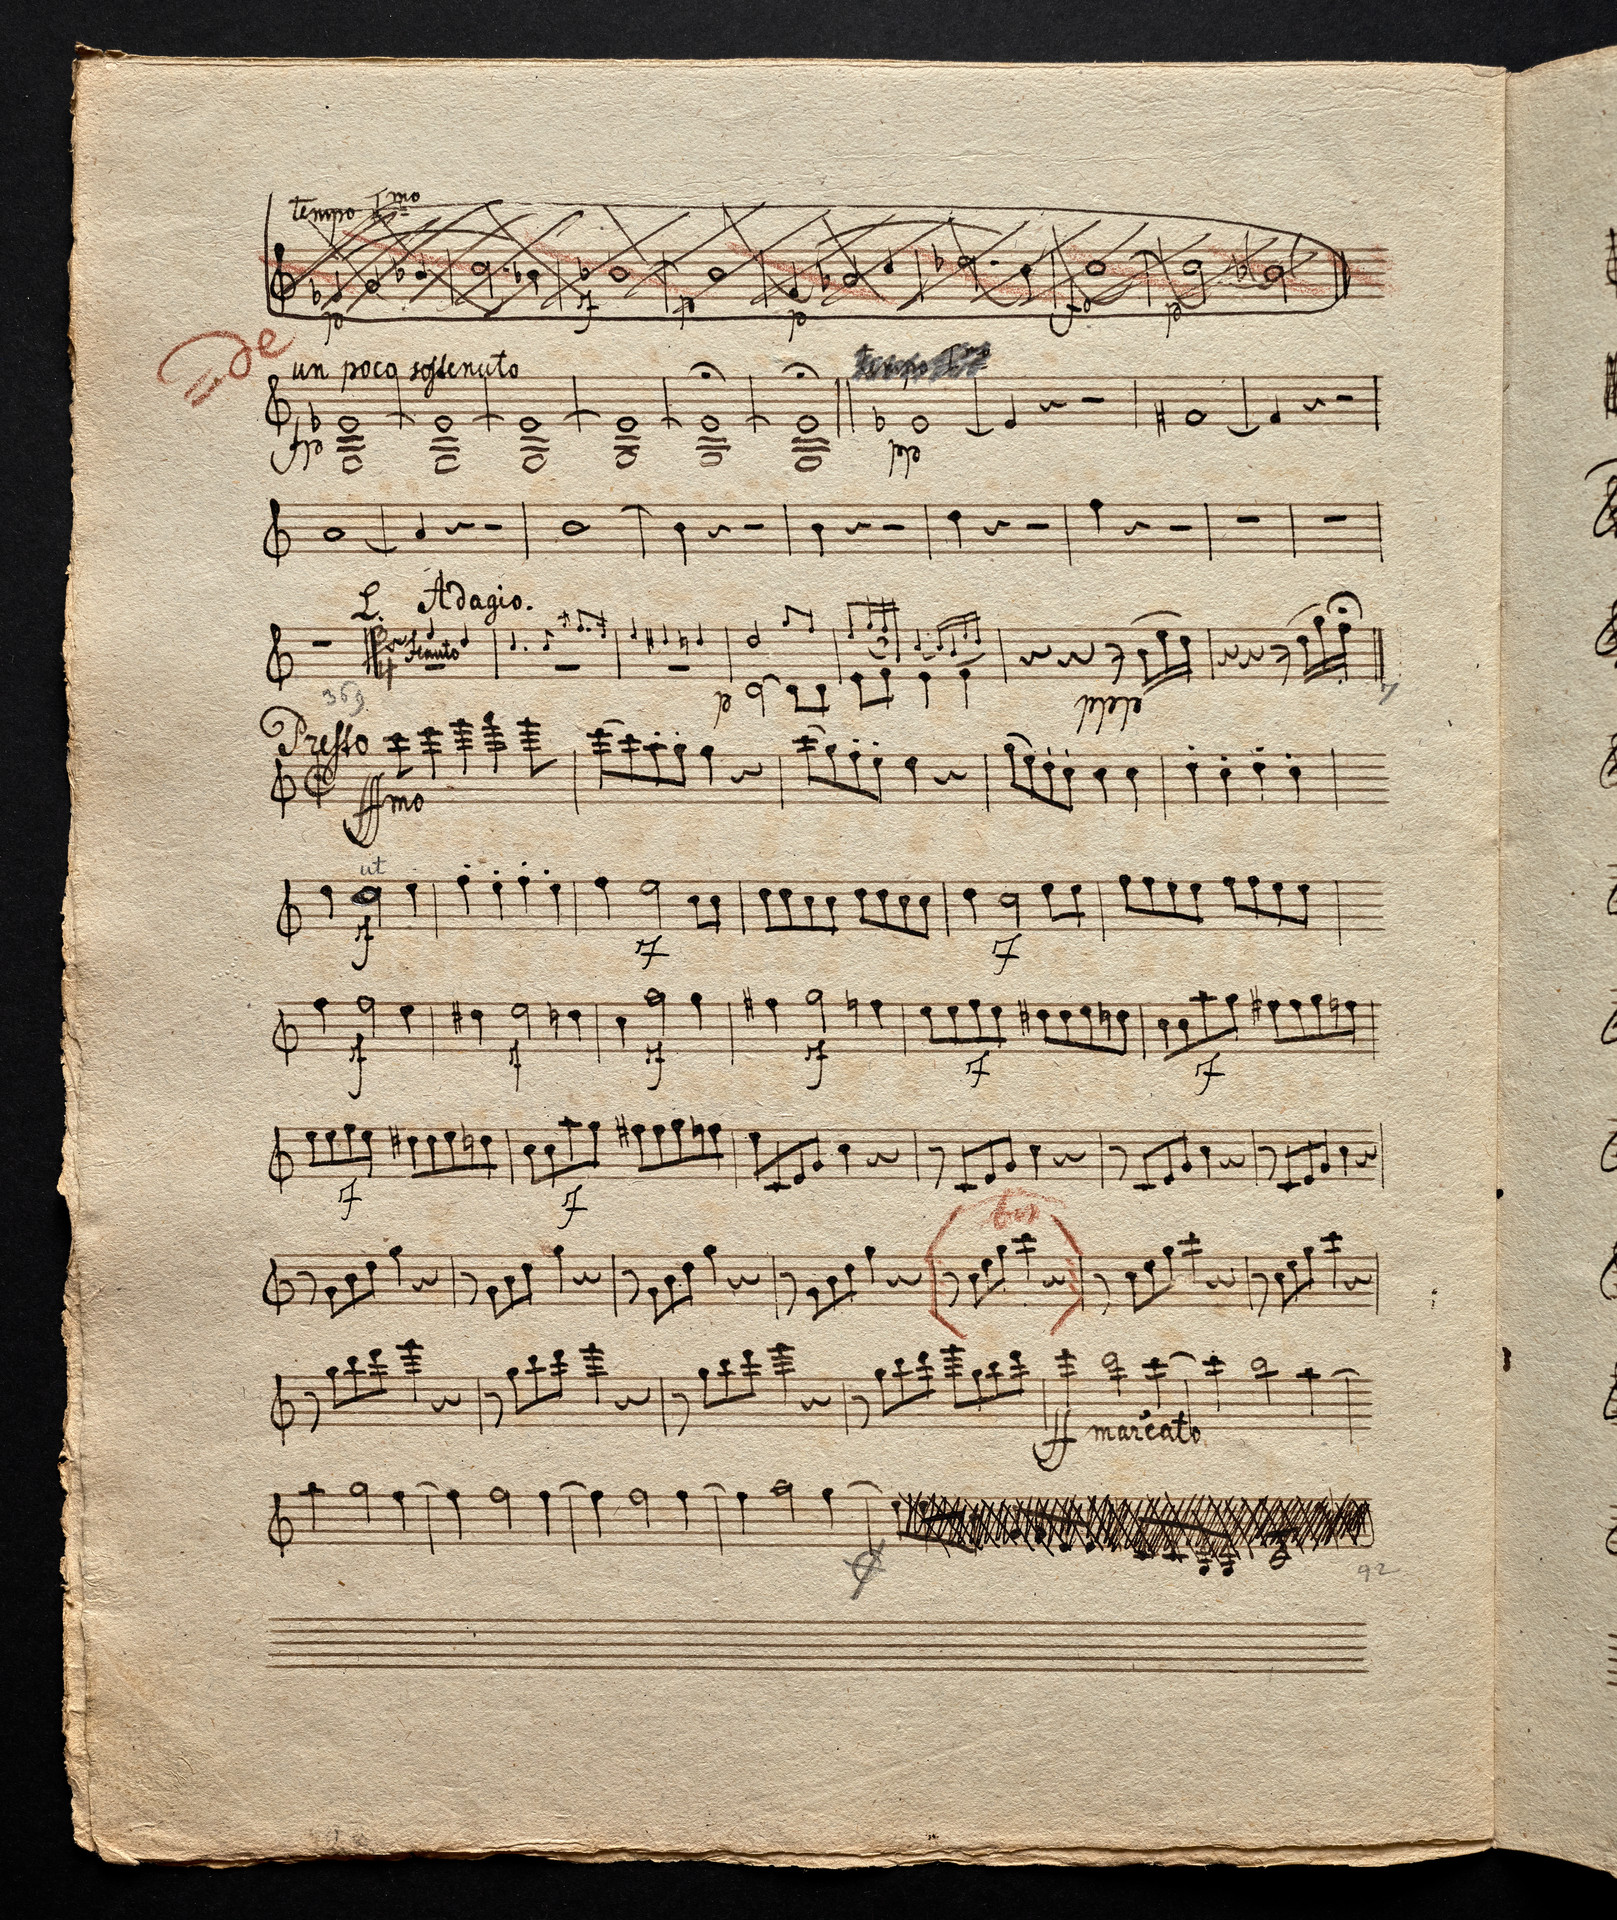 tempo Imo
p f p p fp p
=de
un poco sostenuto tempo Imo
fp pp
L. Adagio.
flauto
3 4
p ppp
369
Presto
ffmo
ut
f f f
f f f f f f
f f
bis
ff marcato
92